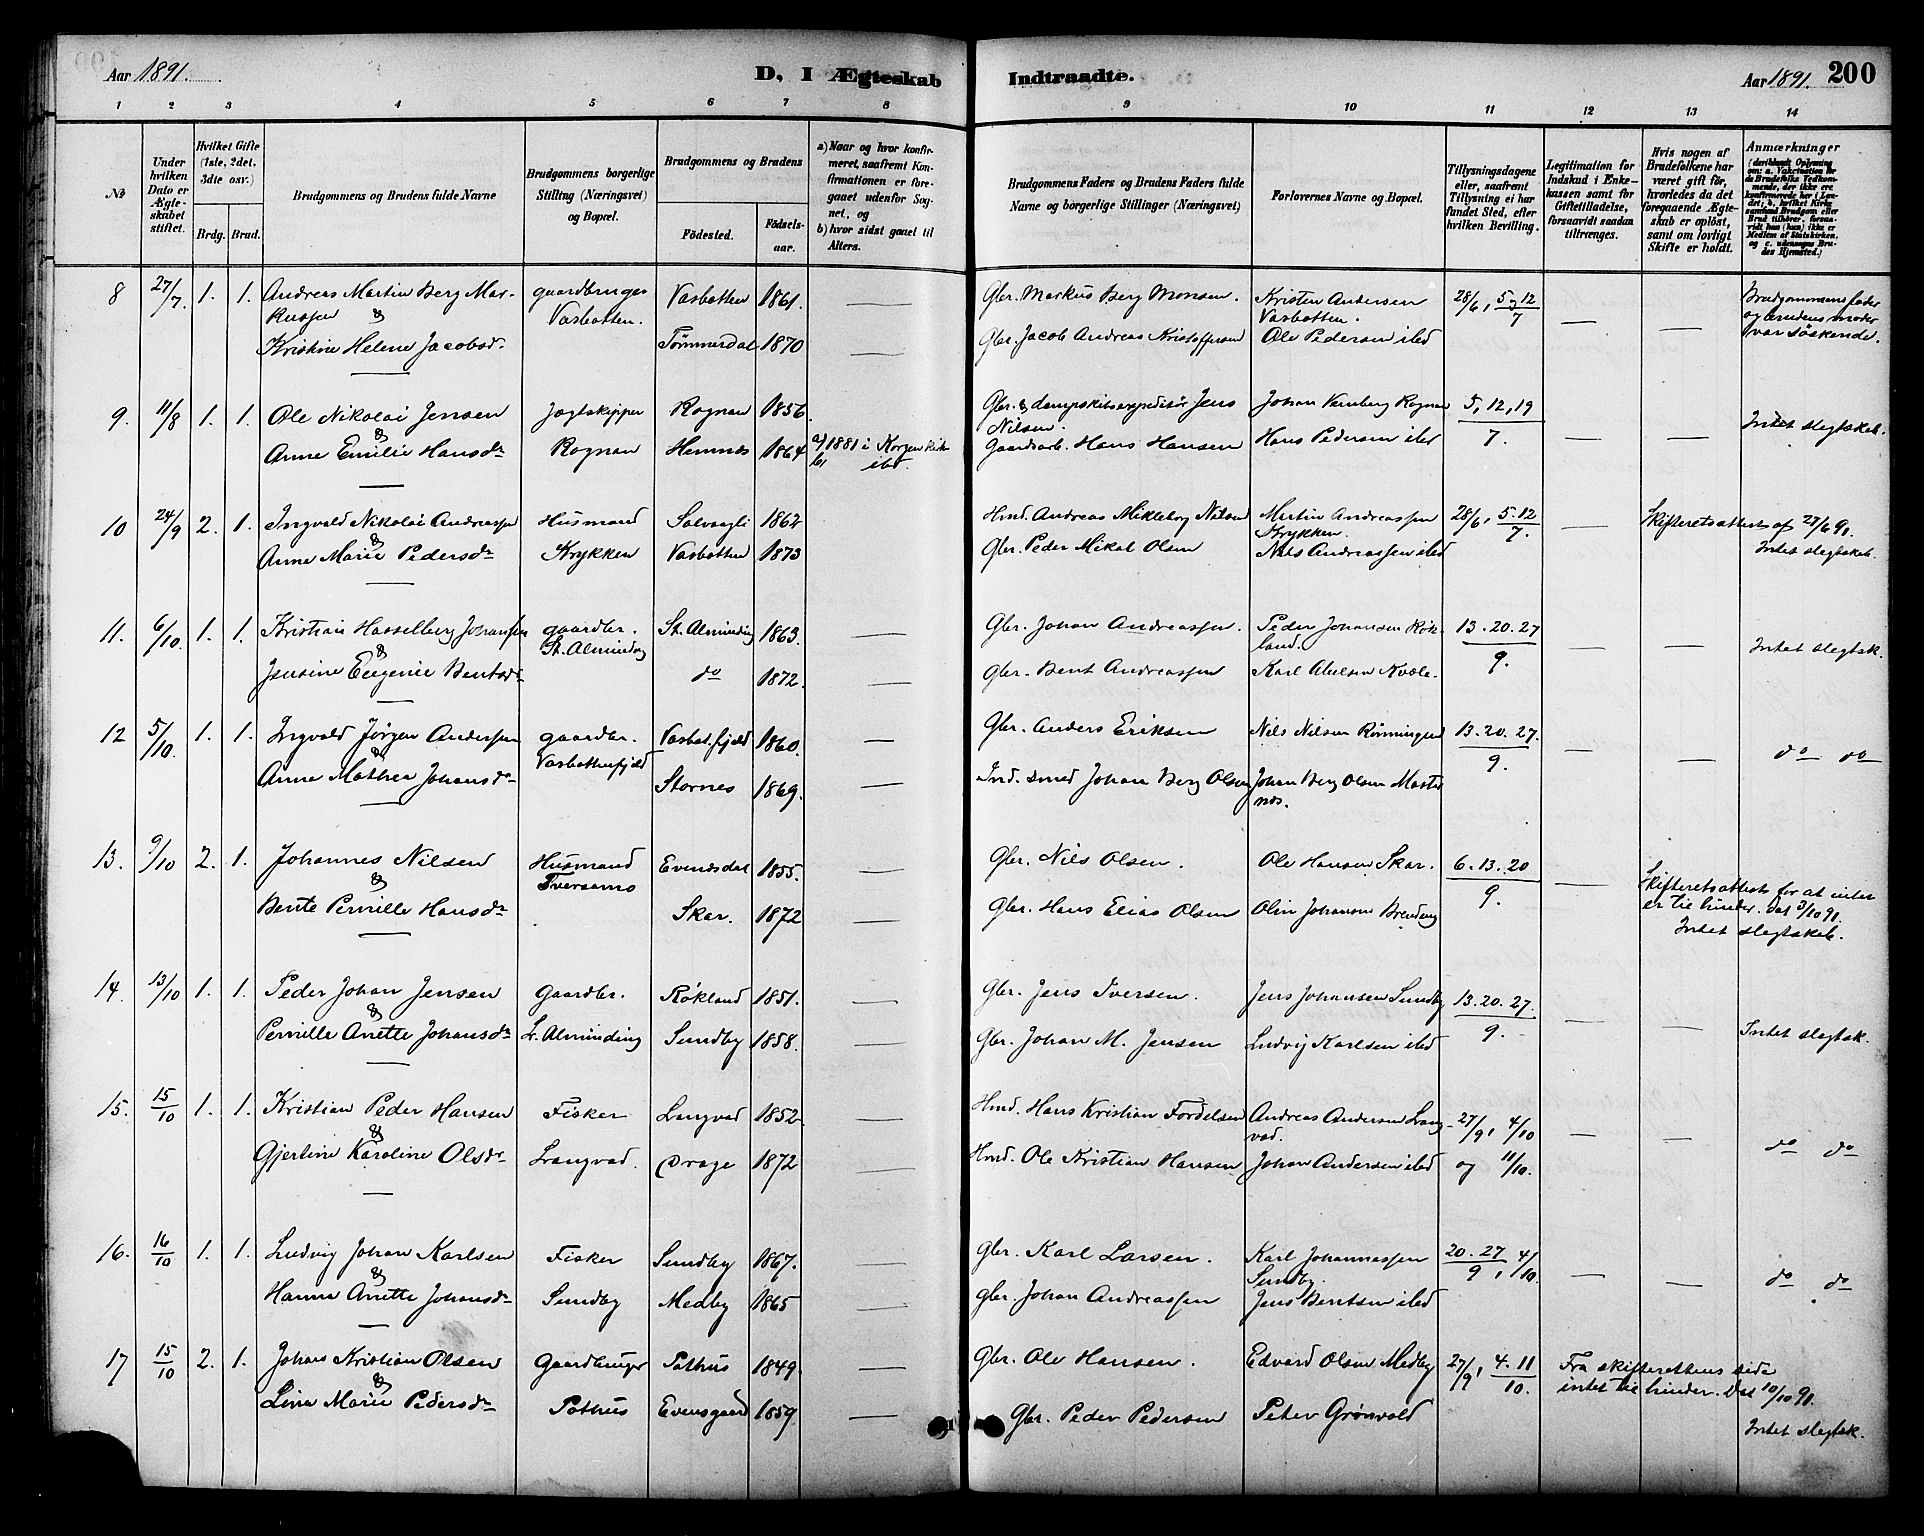 Aar 1891.
D, I Ægteskab
Indtraadte.
Aar 1891.
200
1 2 3 4 5 6 7 8 9 10 11 12 13 14
No
Under hvilken Dato er Ægteskabet stiftet.
Hvilket Gifte (1ste, 2det, 3die osv.)
Brdg. Brud.
Brudgommens og Brudens fulde Navne
Brudgommens borgerlige Stilling (Næringsvei) og Bopæl.
Brudgommens og Brudens
Fødested.
Fødselsaar.
a) Naar og hvor konfirmeret, saafremt Konfirmationen er foregaaet udenfor Sognet, og
b) hvor sidst gaaet til Alters.
Brudgommens Faders og Brudens Faders fulde Navne og borgerlige Stillinger (Næringsvei)
Forlovernes Navne og Bopæl.
Tillysningsdagene eller, saafremt Tillysning ei har fundet Sted, efter hvilken Bevilling.
Legitimation for Indskud i Enkekassen samt for Giftetilladelse, forsaavidt saadan tiltrænges.
Hvis nogen af Brudefolkene har været gift før, hvorledes da det foregaaende Ægteskab er opløst, samt om lovligt Skifte er holdt.
Anmærkninger
(deriblandt Oplysning om: a. Vaksination for de Brudefolks Vedkommende, der ikke ere konfirmerede her i Landet; b. hvilket Kirkesamfund Brudgom eller Brud tilhører, forsaavidt han (hun) ikke er Medlem af Statskirken, og c. udensogns Brudes Hjemsted.)
8 27/7. 1. 1. Andreas Martin Berg Mar- gaardbruger Vasbotten 1861. Gbr. Markus Berg Monsen. Kristen Andersen 28/6, 5 og 12/7 Brudgommens fader
kussen & Vasbotten. Vasbotten. og brudens moder
Kristine Helene Jacobsdr Tømmerdal 1870 Gbr. Jacob Andreas Kristoffersen Ole Pedersen ibd var søskende.
9. 11/8 1. 1. Ole Nikolai Jensen Jægtskipper Rognan 1856. Gbr. & dampskibsexpeditør Jens Johan Rognan 5, 12, 19/7. Intet slegtskab.
& Nilsen.
Anne Emilie Hansdr Rognan Hemnes 1864 a) 1881 i Korgen Kirke Gaardarb. Hans Hansen Hans Pedersen ibd
b) ibd.
10 24/9 2. 1. Ingvald Nikolai Andreassen Husmand Solvaagli 1862 Hmd. Andreas Mikkelborg Nilsen Martin Andreassen 28/6, 5. 12/7. Skifteretsattest af 27/6 91.
& Krykken.
Anne Marie Pedersdr Krykken Vasbotten 1873 Gbr. Peder Mikal Olsen Nils Andreassen ibd Intet slegtskab.
11. 6/10. 1. 1. Kristian Hasselberg Johansen gaardbr. St. Alminding 1863. Gbr. Johan Andreassen. Peder Johansen Røk- 13. 20. 27/9. Intet slegtsk.
& St. Alminding land.
Jensine Eugenie Bentsdr do 1872. Gbr. Bent Andreassen Karl Kvæle.
12 5/10. 1. 1. Ingvald Jørgen Andersen gaardbr. Vasbot.fjeld 1860. Gbr. Anders Eriksen Nils Nilsen Rønningen 13. 20. 27./9. do do
& Vasbottenfjeld
Anne Mathea Johansdr Stornes 1869. Ind. smed Johan Berg Olsen Johan Berg Olsen
nes.
13. 9/10 2. 1. Johannes Nilsen Husmand Evensdal 1855. Gbr. Nils Olsen. Ole Hansen Skar. 6. 13. 20/9. Skifteretsattest for at intet
& Tversaamo er til hinder. Dat 3/10 91.
Bente Pernille Hansdr Skar. 1872 Gbr. Hans Elias Olsen Olin Johansen Intet slegtskab.
14. 13/10 1. 1. Peder Johan Jensen Gaardbr. Røkland 1851. Gbr. Jens Iversen. Jens Johansen Sundby 13. 20. 27./9. Intet slegtsk.
&
Pernille Anette Johansdr L. Alminding Sundby 1858. Gbr. Johan M. Jensen Ludvig Karlsen ibd
15. 15/10 1. 1. Kristian Peder Hansen Fisker Langvad 1852 Hmd. Hans Kristian Fordelsen Andreas Andersen Lang- 27/9, 4/10 do do
& vad.
Gjertine Karoline Olsdr Langvad. Drage 1872 Hmd. Ole Kristian Hansen Johan Andersen ibd og 11/10.
16. 16/10 1. 1. Ludvig Johan Karlsen Fisker Sundby 1867. Gbr. Karl Larsen. Karl Johannessen 20. 27/9, 4/10. do do
& Sundby.
Hanna Anette Johansdr Sundby Medby 1865 Gbr. Johan Andreassen Jens Berntsen ibd
17 15/10 2. 1. Johan Kristian Olsen Gaardbruger Pothus 1849. Gbr. Ole Hansen. Edvard Olsen Medby 27/9, 4. 11/10. Fra skifterettens side
& intet til hinder. Dat 10/10 91.
Lina Marie Pedersdr Pothus Evensgaard 1859 Gbr. Peder Pedersen Peter Grønvold Intet slegtsk.